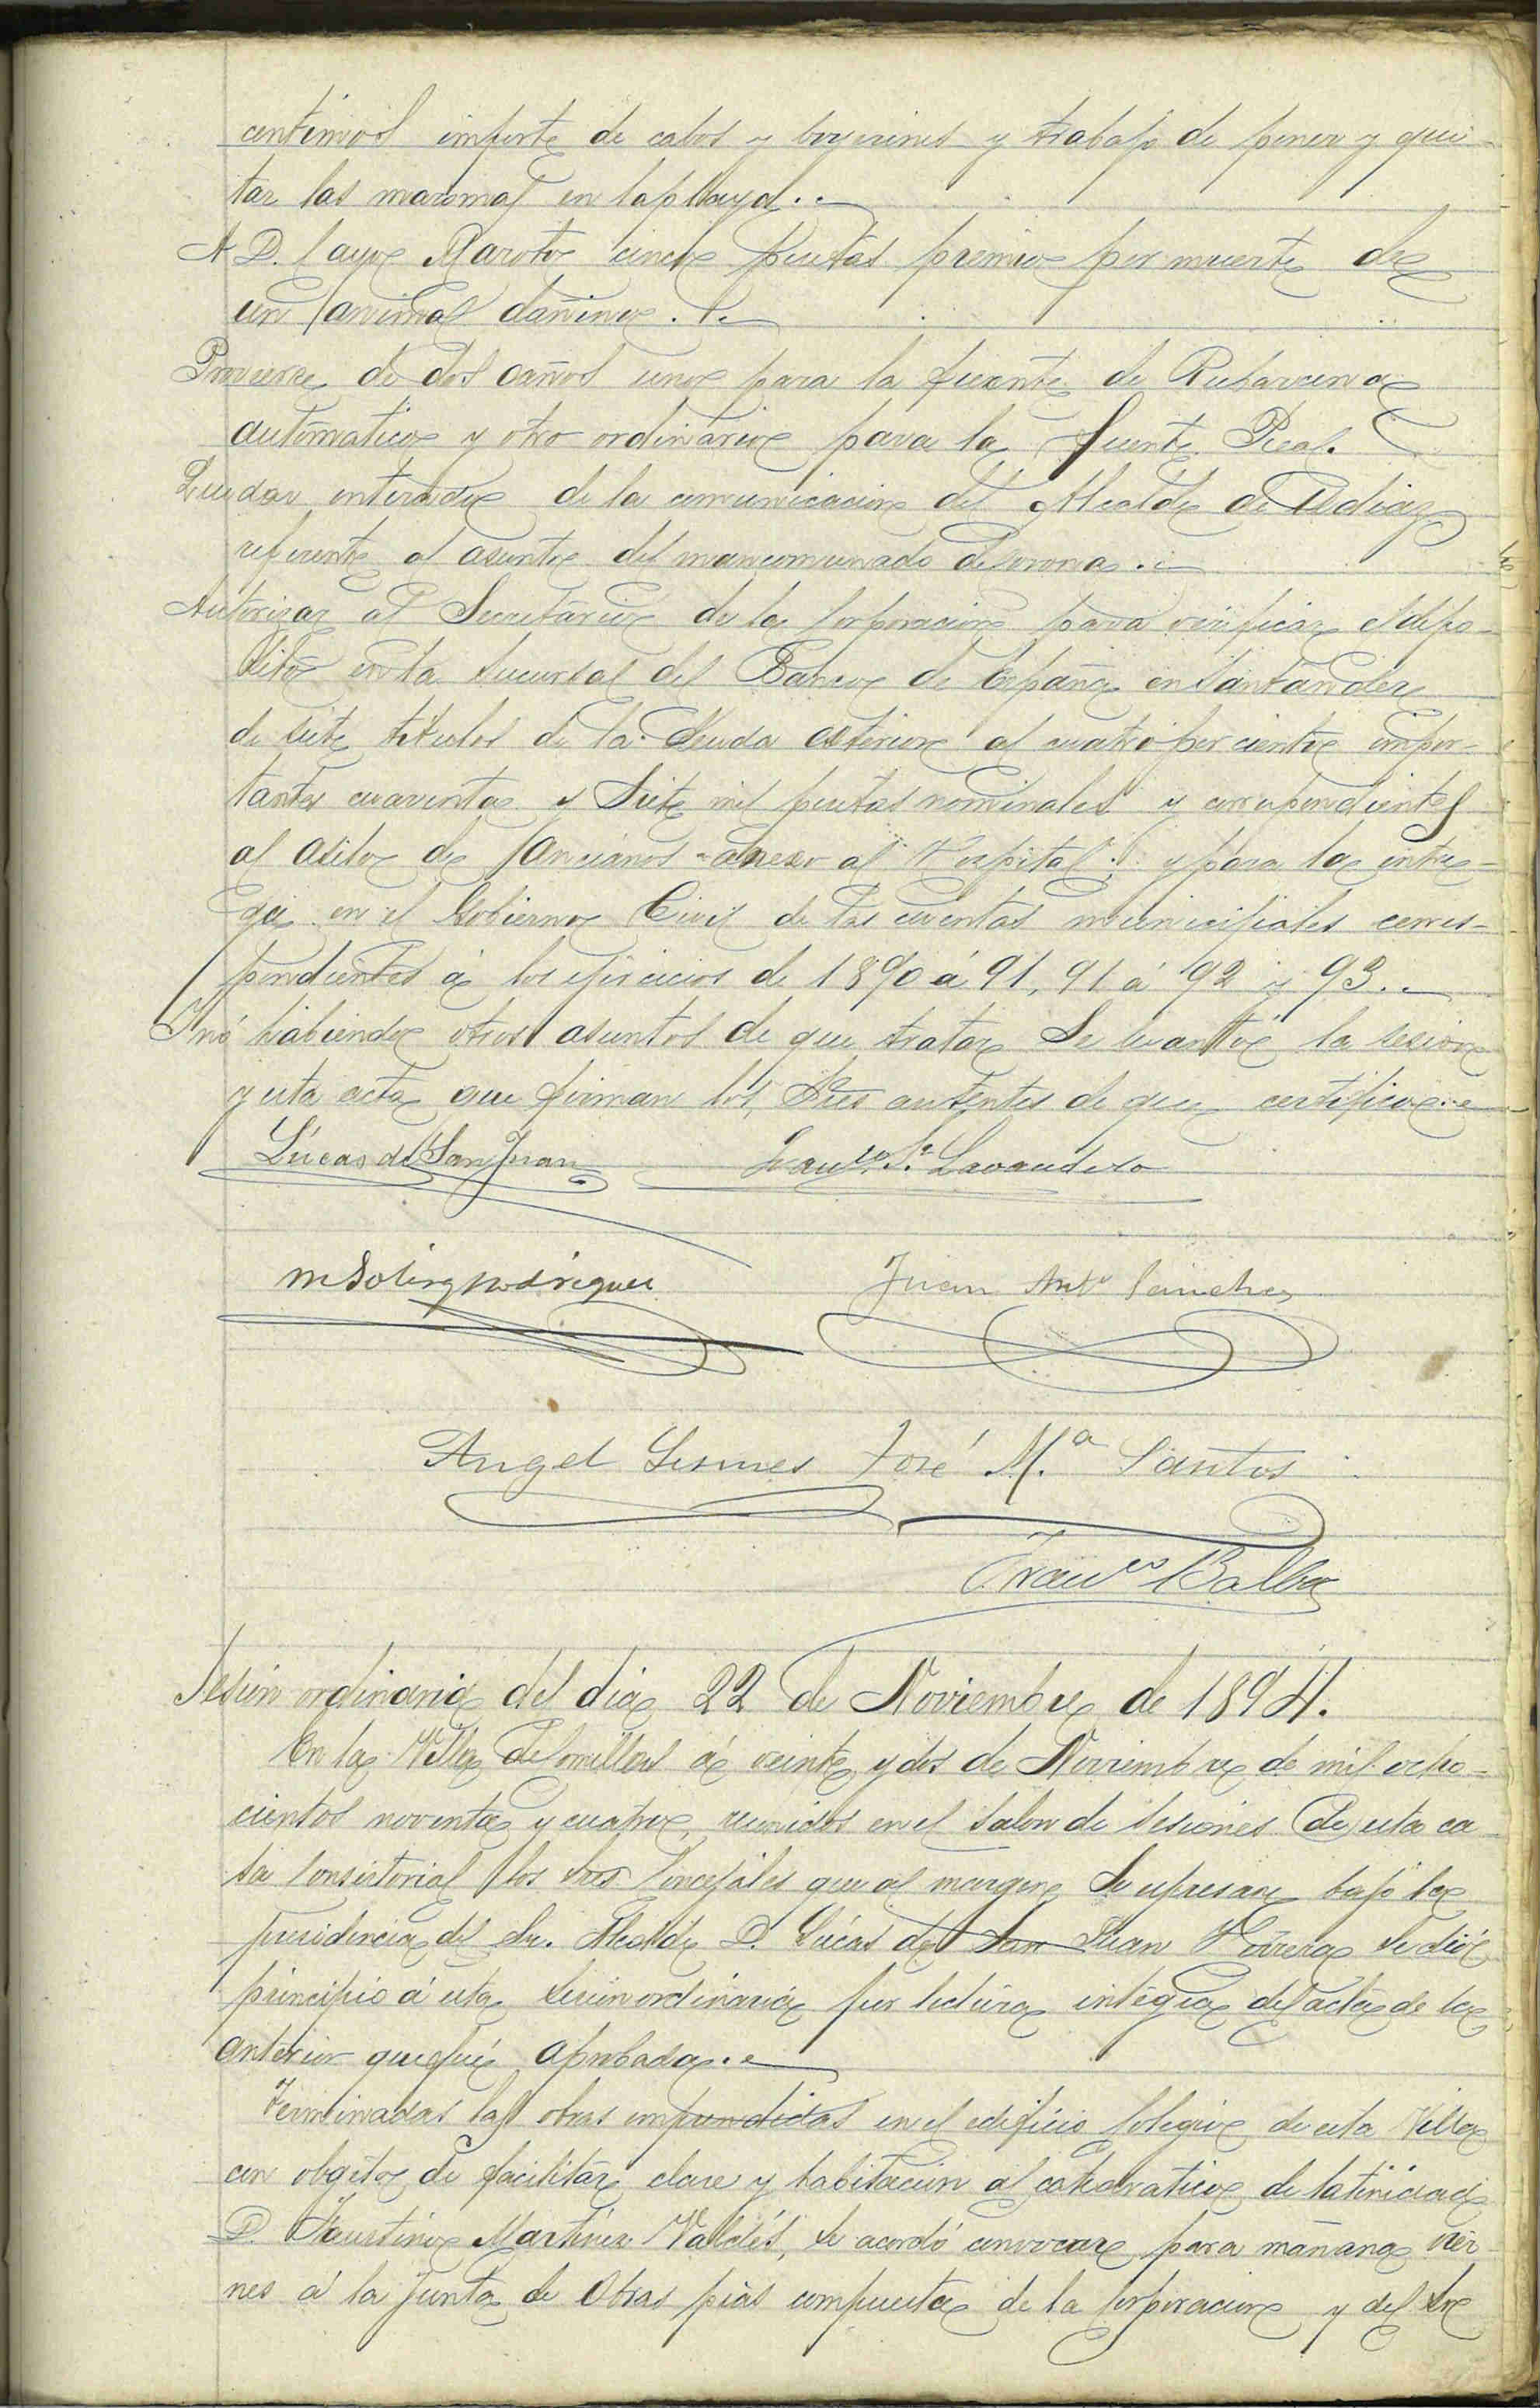 centimos importe de cabos y boyerines y trabajo de poner y qui-
tar las maromas en la playa.
A D. Cayo Maroto cinco pesetas premio por muerte de
un animal dañino.
Proveerse de dos caños uno para la fuente de
automatico y otro ordinario para la Fuente Real.
Quedar enterado de la comunicacion del Alcalde de Udias
referente al asunto del mancomunado de Corona.
Autorizar al Secretario de la Corporacion para verificar el depo-
sito en la Sucursal del Banco de España en Santander
de siete titulos de la Deuda exterior al cuatro por ciento impor-
tantes cuarenta y Siete mil pesetas nominales y correspondientes
al asilo de Ancianos anexo al Hospital; y para la entre-
ga en el Gobierno Civil de las cuentas municipales corres-
pondientes á los ejercicios de 1890 á 91, 91 á 92 y 93.
Y no habiendo otros asuntos de que tratar Se levantó la sesion
y esta acta que firman los Sres asistentes de que certifico.
Lúcas de San Juan Franco. S. Lavandero
M Soling rodriguez Juan Anto Sanches
Angel Gesmes José M.a Santos
Franco Balbas
Sesión ordinaria del dia 22 de Noviembre de 1894.
En la Villa de Comillas á veinte y dos de Noviembre de mil ocho-
cientos noventa y cuatro, reunidos en el Salon de Sesiones de esta ca-
sa Consistorial los Sres Concejales que al margen Se espresan bajo la
presidencia del Sr. Alcalde D. Lúcas de San Juan Herrera se dió
principio á esta Sesion ordinaria por lectura integra del acta de la
anterior que fué aprobada.
Terminadas las obras emprendidas en el edificio Colegio de esta Villa
con obgeto de facilitar clase y habitacion al catedratico de latinidad
D. Faustino Martinez Valdés, se acordó convocar para mañana vier-
nes á la Junta de Obras pias compuesta de la Corporacion y del Sr